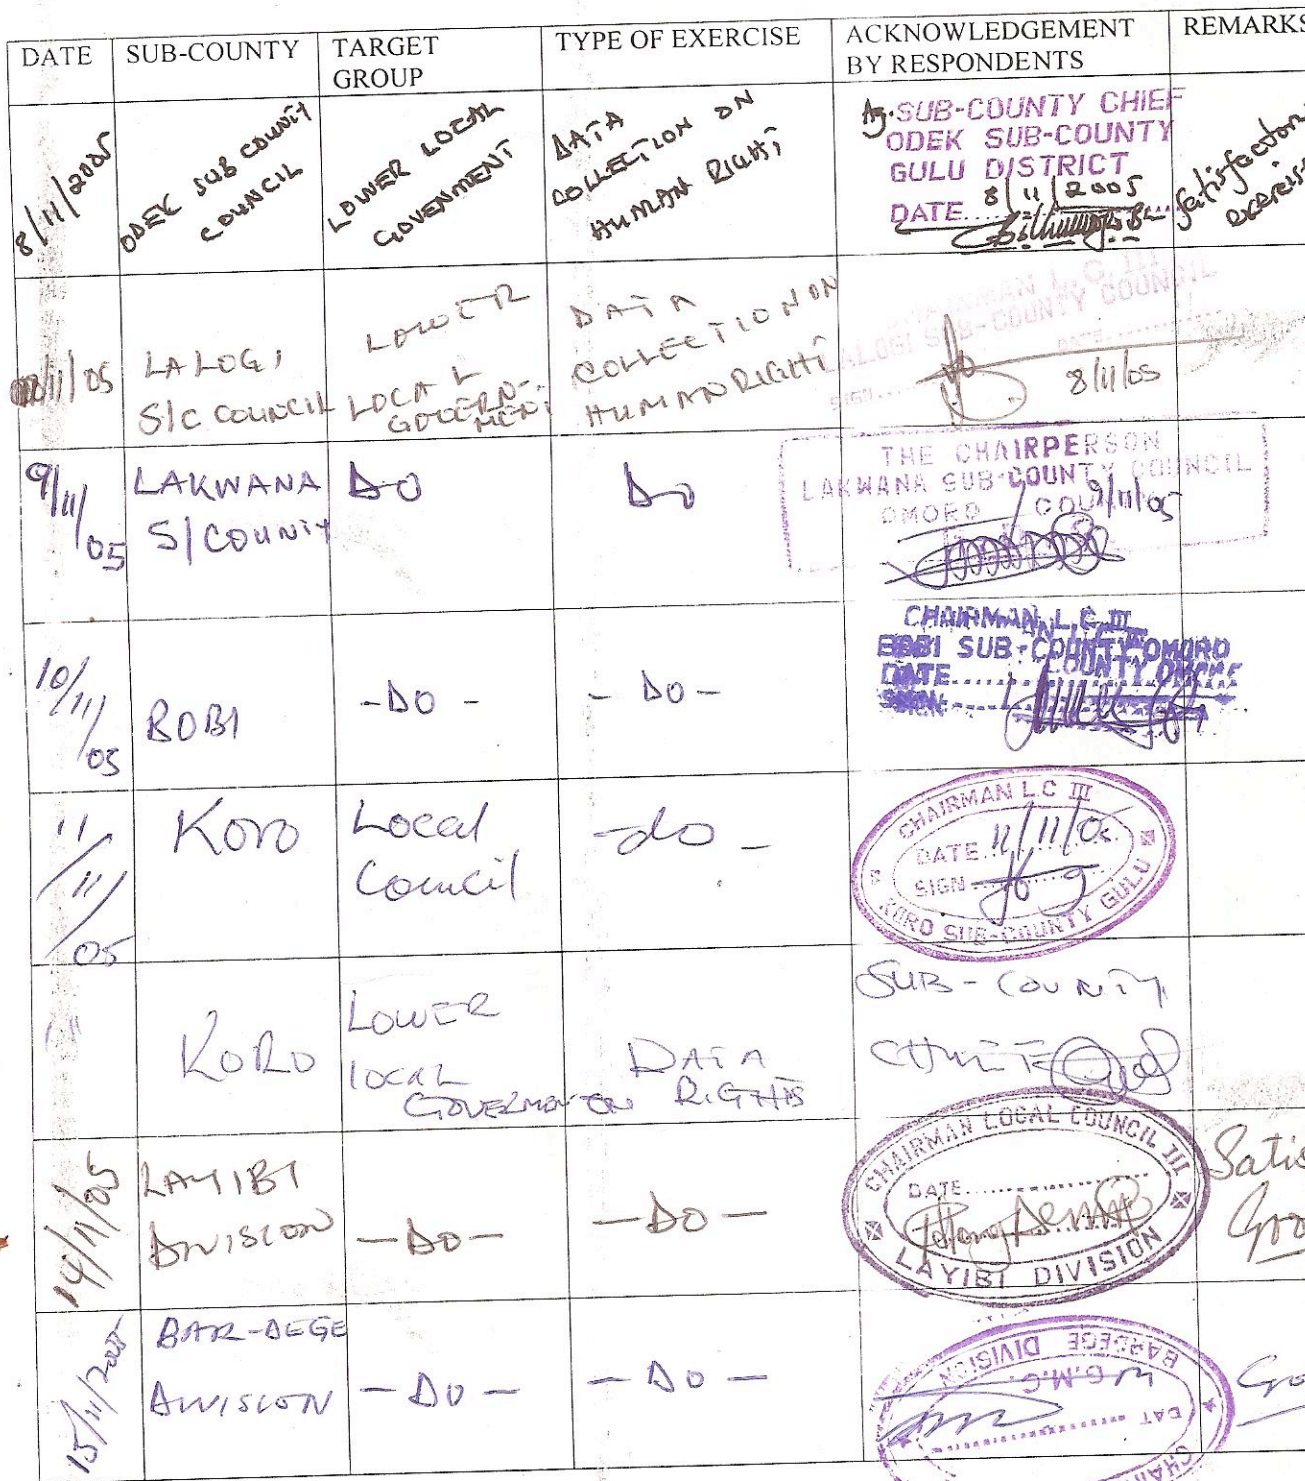 DATE
SUB-COUNTY
TARGET
GROUP
TYPE OF EXERCISE
ACKNOWLEDGEMENT
BY RESPONDENTS
REMARKS
8/11/2005
ODEK SUB COUNTY
COUNCIL
LOWER LOCAL
GOVENMENT
DATA
COLLECTION ON
HUMAN RIGHTS
Ag. SUB-COUNTY CHIEF
ODEK SUB-COUNTY
GULU DISTRICT
DATE 8/11/2005
Satisfactory
exercise
/11/05
LALOGI
S/C COUNCIL
LOWER
LOCAL
GOVERN-
MENT
DATA
COLLECTION ON
HUMAN RIGHTS
L.C. III
LALOGI SUB-COUNTY COUNCIL
DATE
SIGN
8/11/05
9/11/05
LAKWANA
S/COUNTY
DO
DO
THE CHAIRPERSON
LAKWANA SUB-COUNTY COUNCIL
OMORO COUNTY
9/11/05
10/11/05
BOBI
-DO-
-DO-
CHAIRMAN L.C III
BOBI SUB-COUNTY OMORO
DATE
SIGN
11/11/05
Koro
Local
Council
-do-
CHAIRMAN L.C III
DATE 11/11/05
SIGN
KORO SUB-COUNTY GULU
"
KORO
LOWER
LOCAL
GOVERNMENT
DATA
ON RIGHTS
SUB-COUNTY
CHIEF
14/11/05
LAYIBI
DIVISION
-DO-
-DO-
CHAIRMAN LOCAL COUNCIL III
DATE
LAYIBI DIVISION
Satis
Goo
15/11/2005
BAR-DEGE
DIVISION
-DO-
-DO-
BARDEGE DIVISION
G.M.C
DAT
Go